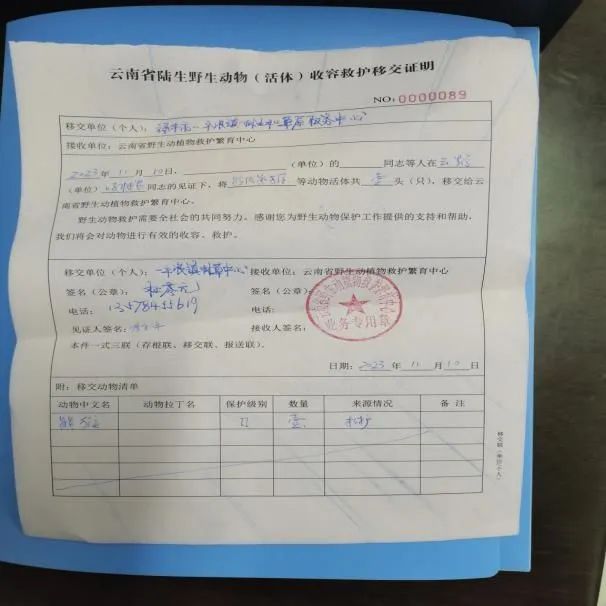 云南省陆生野生动物（活体）收容救护移交证明
NO:0000089
移交单位（个人）：禄丰市一平浪镇林业和草原服务中心
接收单位：云南省野生动植物救护繁育中心
2023年11月10日，（单位）的 同志等人在云
（单位） 同志的见证下，将 等动物活体共壹头（只），移交给云
南省野生动植物救护繁育中心。
野生动物救护需要全社会的共同努力。感谢您为野生动物保护工作提供的支持和帮助，
我们将会对动物进行有效的收容、救护。
移交单位（个人）：一平浪镇林草中心 接收单位：云南省野生动植物救护繁育中心
签名（公章）： 签名（公章）：
电话：13578455619 电话：
见证人签名： 接收人签名：
业务专用章
本件一式三联（存根联、移交联、报送联）。
日期：2023年11月10日
附：移交动物清单
动物中文名 动物拉丁名 保护级别 数量 来源情况 备注
II 壹 救护
移交联（单位/个人）